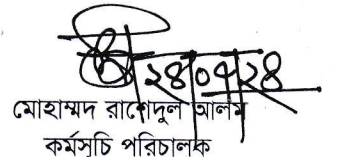 ২৪/০৭/২৪
মোহাম্মদ রাশেদুল আলম
কর্মসূচি পরিচালক